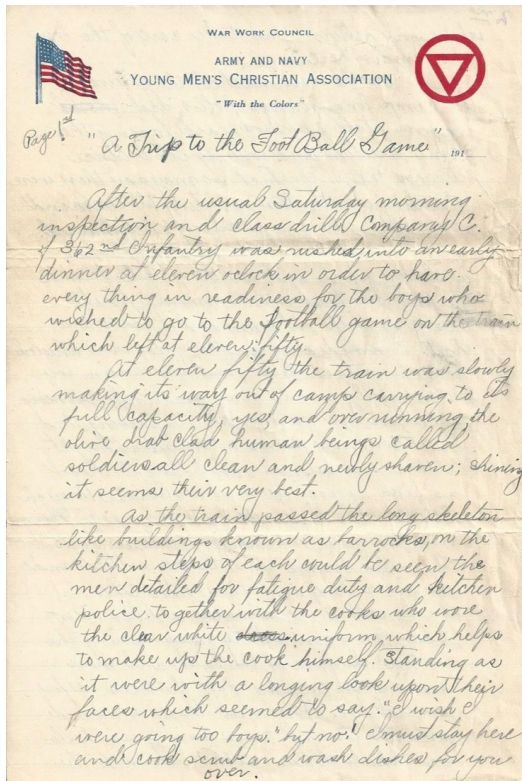 WAR WORK COUNCIL
ARMY AND NAVY
YOUNG MEN'S CHRISTIAN ASSOCIATION
"With the Colors"
Page 1st
"A Trip to the Foot Ball Game" 191
After the usual Saturday morning
inspection and class drills Company C.
of 362nd Infantry was rushed into an early
dinner at eleven oclock in order to have
every thing in readiness for the boys who
wished to go to the football game on the train
which left at eleven:fifty.
At eleven fifty the train was slowly
making its way out of camp carrying to its
full capacity, yes, and over running, the
olive drab clad human beings called
soldiers all clean and newly shaven; shining
it seems their very best.
As the train passed the long skeleton
like buildings known as barrocks, on the
kitchen steps of each could be seen the
men detailed for fatigue duty and kitchen
police. to gether with the cooks who wore
the clear white dress uniform, which helps
to make up the cook himself. Standing as
it were with a longing look upon their
faces which seemed to say. "I wish I
were going too boys." but no! I must stay here
and cook scrub and wash dishes for you
over.